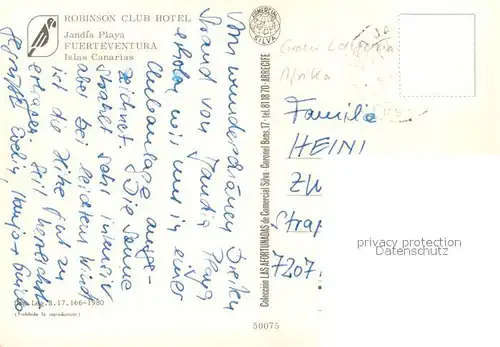 ROBINSON CLUB HOTEL
Jandía Playa
FUERTEVENTURA
Islas Canarias
Vom wunderschönen breiten
Strand von Jandia Playa
erholen wir uns in einer
Clubanlage ausge-
zeichnet. Die Sonne
strahlt sehr intensiv
aber bei leichtem Wind
ist die Hitze gut zu
ertragen. Seid herzlichst
gegrüßt Evelin,
Dep. Leg. B. 17.166-1980
(Prohibida la reproducción)
COMERCIAL
SILVA
Colección LAS AFORTUNADAS de Comercial Silva - Coronel Bens, 17 - tel. 81 18 70 - ARRECIFE
50075
Gran Canaria
Afrika
JA
Familie
HEINI
ZW
Strap
7207
privacy protection
Datenschutz